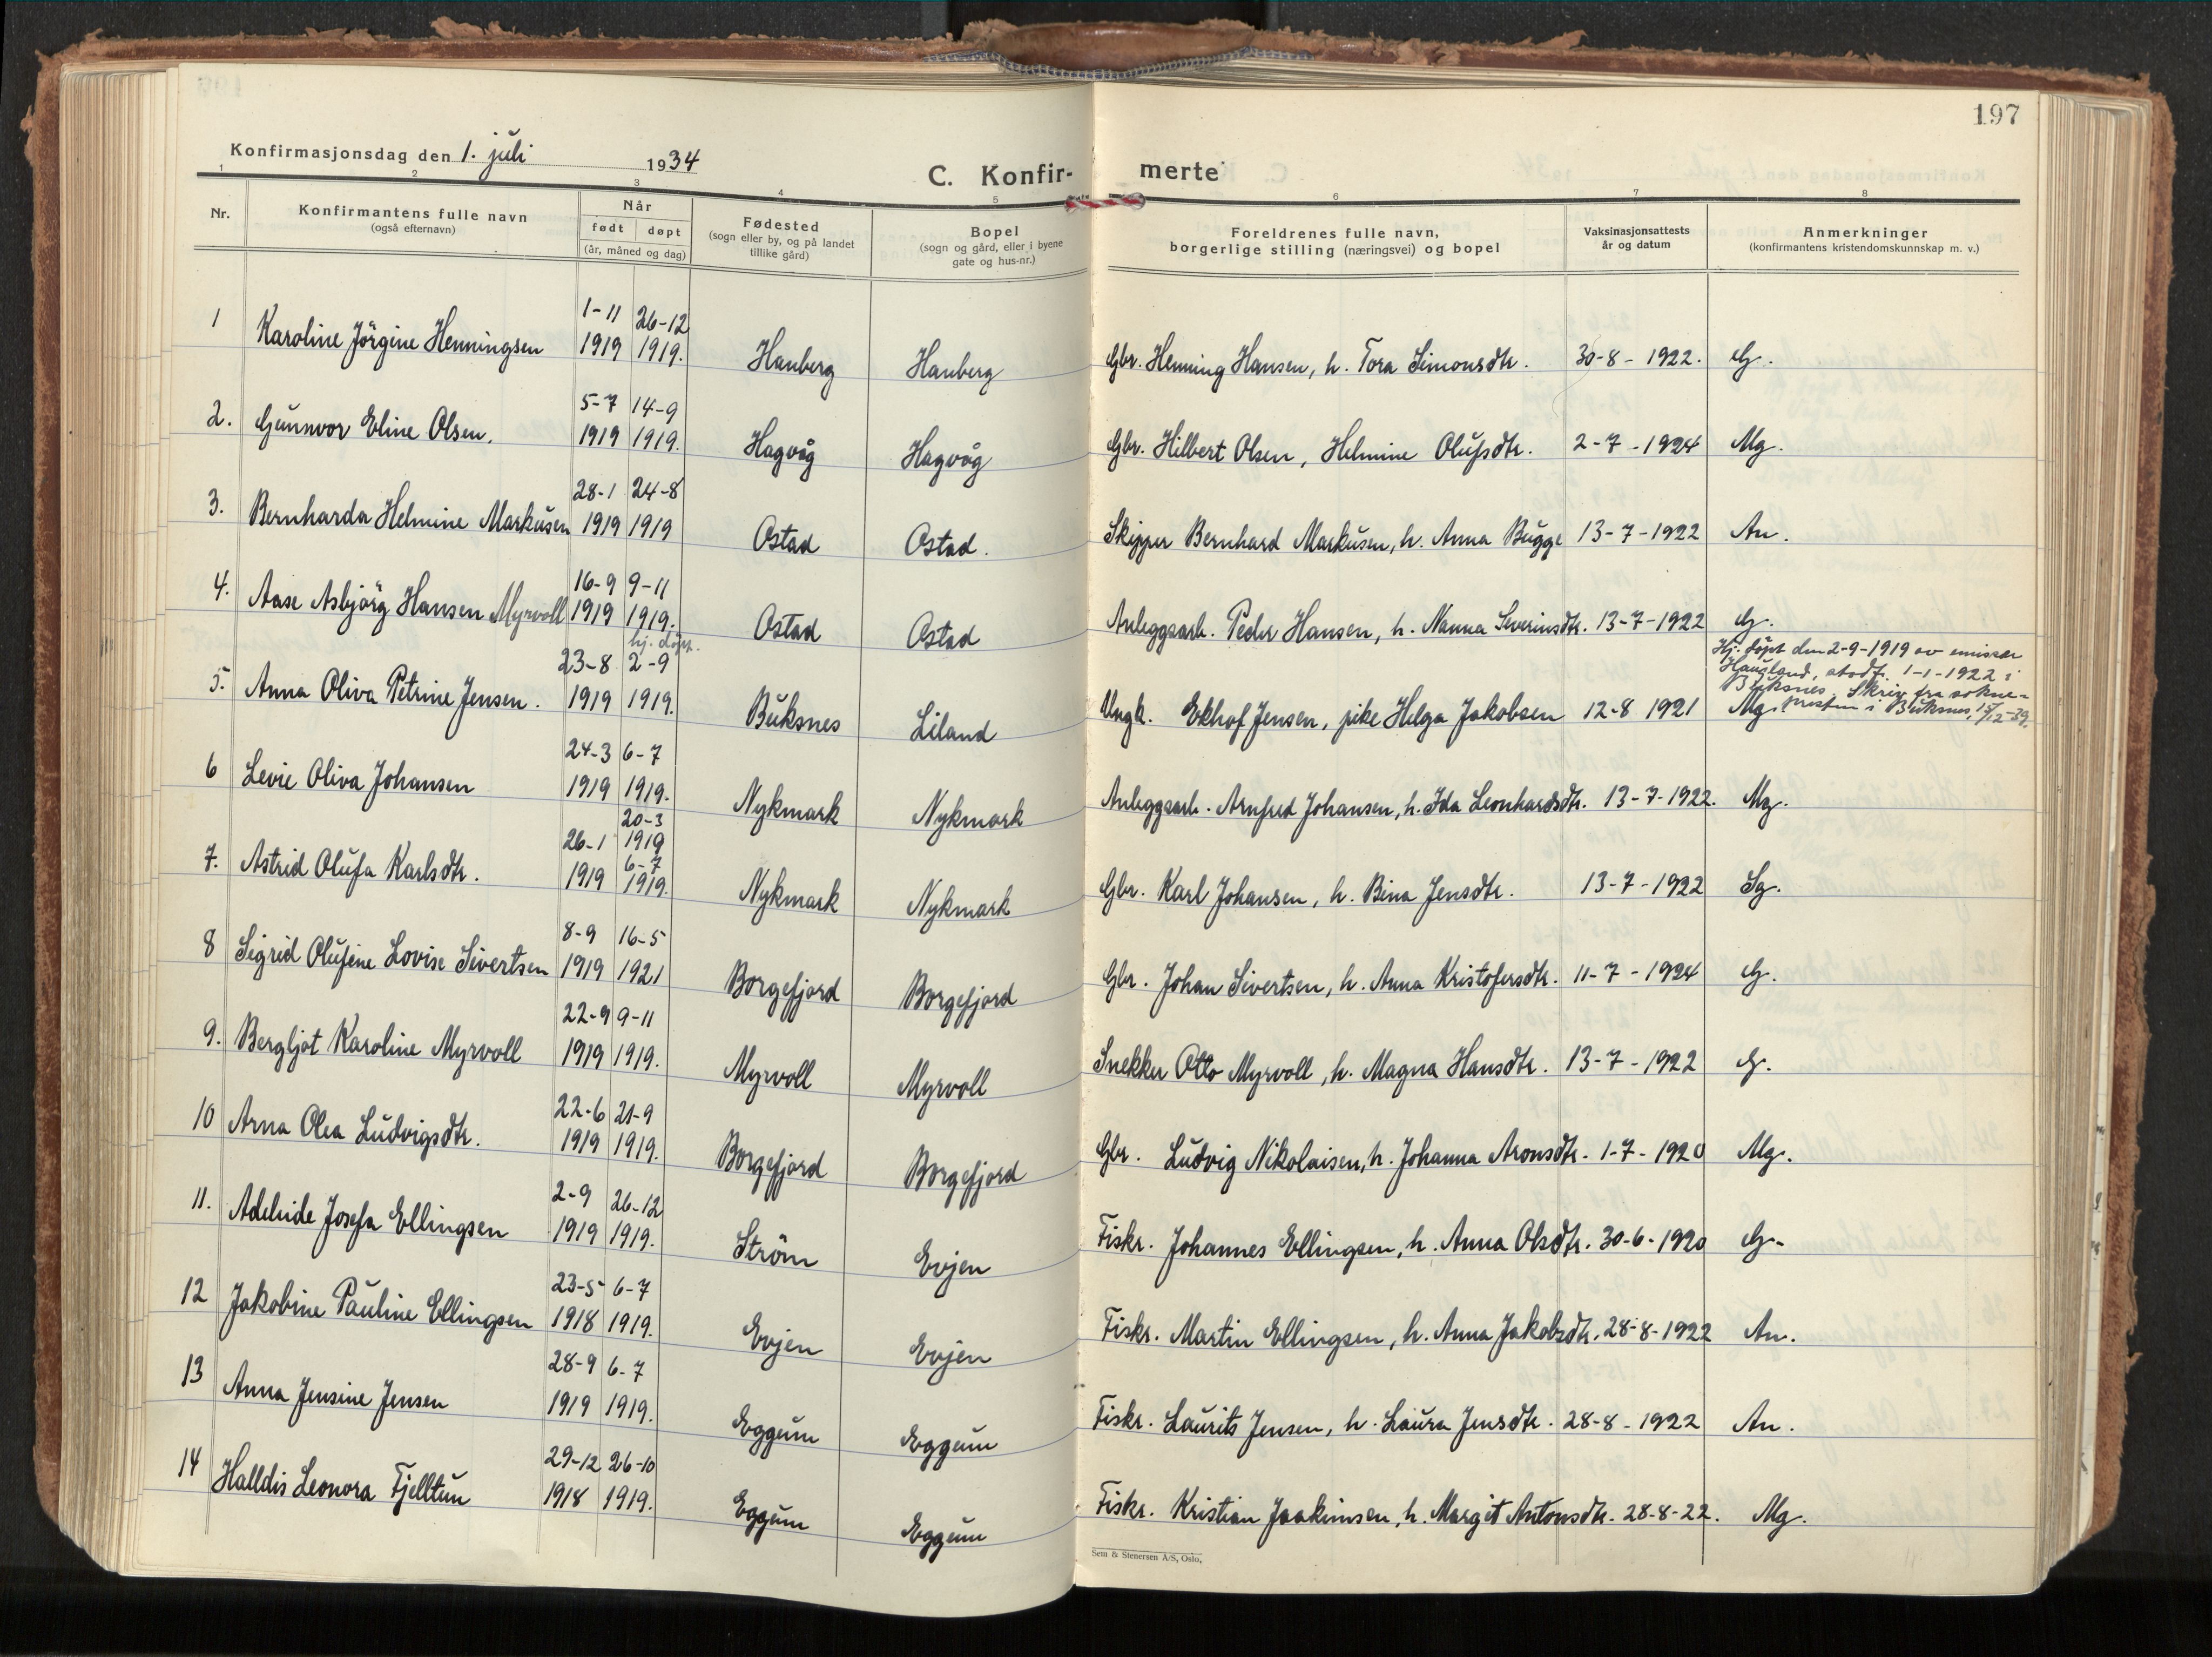 197
Konfirmasjonsdag den 1. juli 1934
C. Konfir- merte
1 2 3 4 5 6 7 8
Nr. Konfirmantens fulle navn (også efternavn) Når født døpt (år, måned og dag) Fødested (sogn eller by, og på landet tillike gård) Bopel (sogn og gård, eller i byene gate og hus-nr.) Foreldrenes fulle navn, borgerlige stilling (næringsvei) og bopel Vaksinasjonsattests år og datum Anmerkninger (konfirmantens kristendomskunnskap m. v.)
1 Karoline Jörgine Henningsen 1-11 1919 26-12 1919. Hauberg Hauberg Gbr. Henning Hansen, h. Tora Simonsdtr. 30-8-1922. G.
2. Gunnvor Eline Olsen. 5-7 1919 14-9 1919. Hagvåg Hagvåg Gbr. Hilbert Olsen, Helmine Olufsdtr. 2-7-1924 Mg.
3. Bernharda Helmine Markusen 28-1 1919 24-8 1919 Ostad Ostad. Skipper Bernhard Markusen, h. Anna Bugge 13-7-1922 An.
4. Aase Asbjörg Hansen Myrvoll 16-9 1919 9-11 1919. Ostad Ostad Anleggsarb. Peder Hansen, h. Nanna Severinsdtr. 13-7-1922 G.
5. Anna Oliva Petrine Jensen. 23-8 1919 hj. döpt. 2-9 1919. Buksnes Liland Ungk. Ekhof Jensen, pike Helga Jakobsen 12-8 1921 Mg.
Hj. döpt den 2-9-1919 av emissær
Haugland, stadf. 1-1-1922 i
Buksnes. Skriv fra sokne-
presten i Buksnes, 15/12-39.
6 Levie Oliva Johansen 24-3 1919 6-7 1919. Nykmark Nykmark Anleggsarb. Arnfred Johansen, h. Ida Leonhardsdtr. 13-7-1922. Mg.
7. Astrid Olufa Karlsdtr. 26-1 1919 20-3 1919 6-7 1919. Nykmark Nykmark Gbr. Karl Johansen, h. Bina Jensdtr. 13-7-1922 Sg.
8 Sigrid Olufine Lovise Sivertsen 8-9 1919 16-5 1921 Borgefjord Borgefjord Gbr. Johan Sivertsen, h. Anna Kristofersdtr. 11-7-1924 G.
9. Bergljot Karoline Myrvoll 22-9 1919 9-11 1919. Myrvoll Myrvoll Snekker Otto Myrvoll, h. Magna Hansdtr. 13-7-1922 G.
10 Arna Olea Ludvigsdtr. 22-6 1919 21-9 1919. Borgefjord Borgefjord Gbr. Ludvig Nikolaisen, h. Johanna Aronsdtr. 1-7-1920 Mg.
11. Adeleide Josefa Ellingsen 2-9 1919 26-12 1919. Ström Evjen Fiskr. Johannes Ellingsen, h. Anna Olsdtr. 30-6-1920 G.
12 Jakobine Pauline Ellingsen 23-5 1918 6-7 1919. Evjen Evjen Fiskr. Martin Ellingsen, h. Anna Jakobsdtr. 28-8-1922 An.
13 Anna Jensine Jensen 28-9 1919 6-7 1919. Eggum Eggum Fiskr. Laurits Jensen, h. Laura Jensdtr. 28-8-1922 An.
14 Halldis Leonora Fjelltun 29-12 1918 26-10 1919. Eggum Eggum Fiskr. Kristian Joakimsen, h. Margit Antonsdtr. 28-8-22. Mg.
Sem & Stenersen A/S, Oslo.